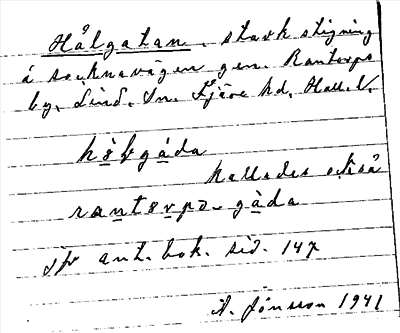 Hålgatan. stark stigning
å socknavägen gen. Rantorps
by, Lind. Sn. Fjäre hd. Hall. l.
hålgáda
kallades också
rantorpə-gàda
jfr ant. bok. sid. 147
A. Jónsson 1941